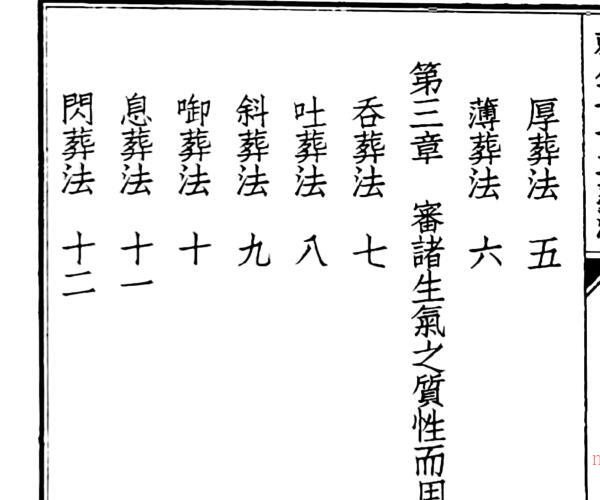 厚葬法 五
薄葬法 六
第三章 審諸生氣之質性而用
吞葬法 七
吐葬法 八
斜葬法 九
啣葬法 十
息葬法 十一
閃葬法 十二